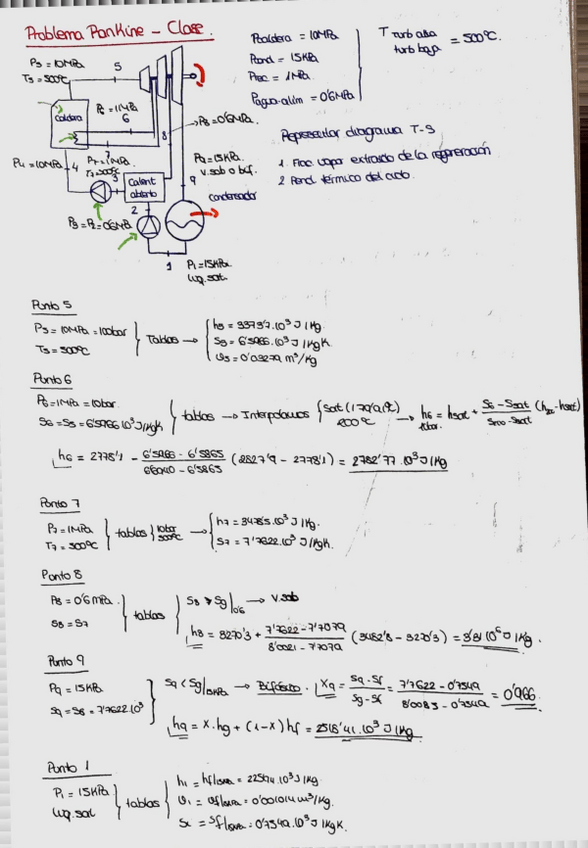 Problema Rankine - Clase.
Pcaldera = 10MPa
Pcond = 15KPa
Prec = 1MPa
Pagua-alim = 0'6MPa
T turb alta
turb baja = 500ºC.
P5 = 10MPa
T5 = 500ºC
5
P6 = 1MPa
6
caldera
P8 = 0'6MPa.
8
7
P7 = 1MPa
T7 = 500ºC
P4 = 10MPa
4
3
Calent
abierto
P9 = 15KPa
v.sob o bif.
9
condensador
2
P3 = P2 = 0'6MPa
1
P1 = 15KPa
liq. sat.
Representar diagrama T-S
1. Frac vapor extraido de la regeneración
2. Rend térmico del ciclo.
Punto 5
P5 = 10MPa = 100bar
T5 = 500ºC
Tablas →
h5 = 3373'7.10³ J/Kg.
S5 = 6'5966.10³ J/KgK
υ5 = 0'03279 m³/Kg
Punto 6
P6 = 1MPa = 10bar.
S6 = S5 = 6'5966 10³ J/KgK
tablas → Interpolamos
sat (179'9ºC)
200ºC
→ h6 = hsat + S6 - Ssat / S200 - Ssat (h200 - hsat)
h6 = 2778'1 - 6'5966 - 6'5865 / 6'6940 - 6'5865 (2827'9 - 2778'1) = 2782'77.10³ J/Kg
Punto 7
P7 = 1MPa
T7 = 500ºC
tablas 10bar 500ºC →
h7 = 3478'5.10³ J/Kg.
S7 = 7'7622.10³ J/KgK.
Punto 8
P8 = 0'6 MPa.
S8 = S7
tablas
S8 > Sg|0'6 → v.sob
h8 = 3270'3 + 7'7622 - 7'7079 / 8'0021 - 7'7079 (3482'8 - 3270'3) =
Punto 9
P9 = 15KPa
S9 = S8 = 7'7622 10³
S9 < Sg|15KPa → Bifásico. X9 = S9 - Sf / Sg - Sf = 7'7622 - 0'7549 / 8'0085 - 0'7549 = 0'966.
h9 = x.hg + (1-x) hf = 2518'41.10³ J/Kg.
Punto 1
P1 = 15KPa
liq. sat
tablas
h1 = hf|15KPa = 225'94.10³ J/Kg.
υ1 = υf|15KPa = 0'001014 m³/Kg.
S1 = Sf|15KPa = 0'7549.10³ J/KgK.